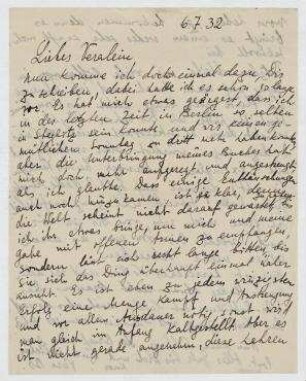 6.7.32
Liebes Veralein,
nun komme ich doch einmal dazu, Dir
zu schreiben, dabei hatte ich es schon so lange
vor. Es hat mich etwas , dass ich
in der letzten Zeit in Berlin so selten
in Steglitz sein konnte und wir einen
mütlichen Sonntag zu dritt nicht haben konnten
aber die Unterbringung meines Buches hat
mich doch mehr aufgeregt und angestrengt
als ich glaubte. Dass einige Enttäuschungen
auch noch hinzukamen, ist ja klar, denn
die Welt scheint nicht darauf gewartet zu
ich ihr etwas bringe, um mich und meine
Gabe mit offenen Armen zu empfangen,
sondern lässt sich erst lange bitten bis
sie sich das Ding überhaupt einmal näher
ansieht. Es ist eben zu jedem winzigsten
Erfolg eine Menge Kampf und Anstrengung
und vor allem Ausdauer nötig, sonst wird
man gleich im Anfang kaltgestellt. Aber es
ist nicht gerade angenehm, diese Lehren